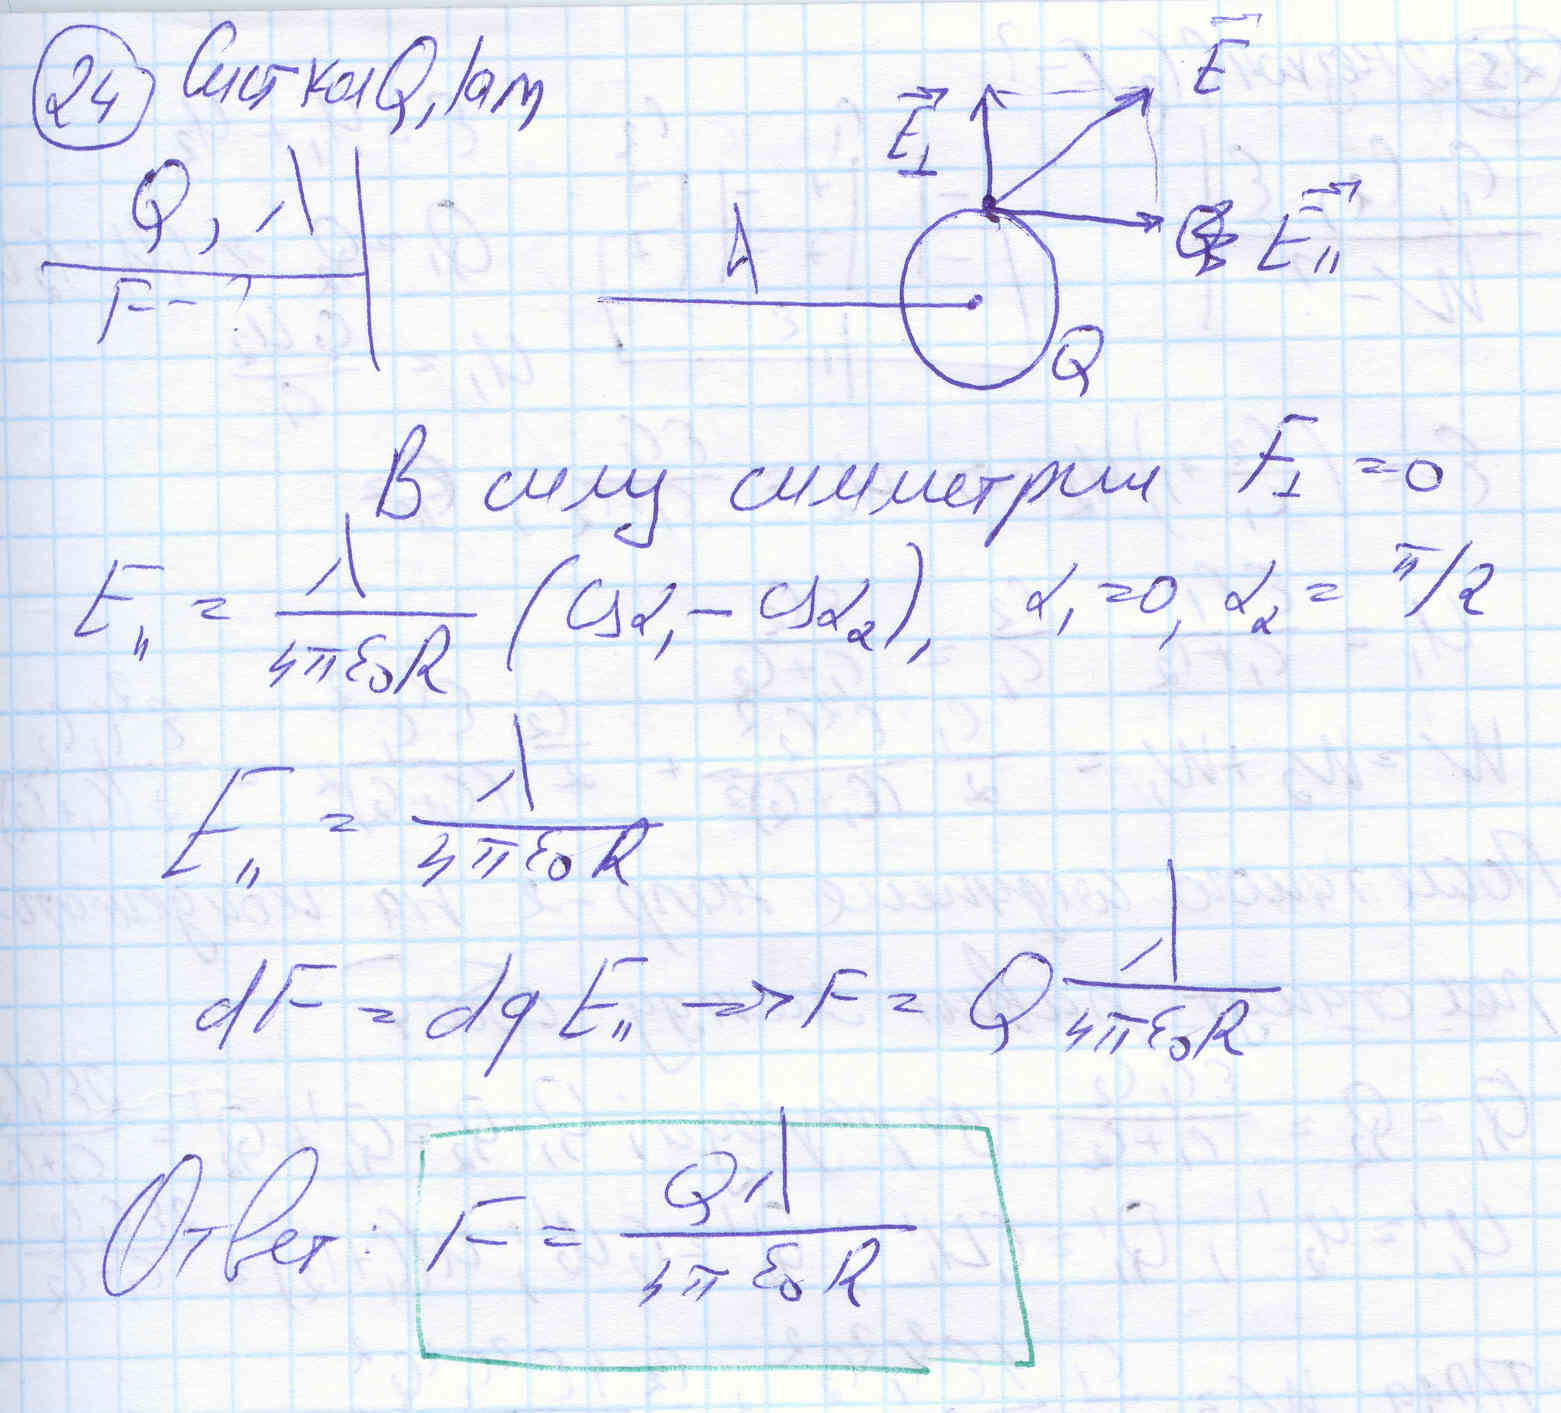 24 Q, λ
Q, λ
F - ?
E⃗
E⃗⊥
E⃗॥
λ
Q
В силу симметрии F⊥ = 0
E॥ = λ / 4πε₀R (cosα₁ - cosα₂), α₁ = 0, α₂ = π/2
E॥ = λ / 4πε₀R
dF = dq E॥ → F = Q λ / 4πε₀R
Ответ: F = Qλ / 4πε₀R